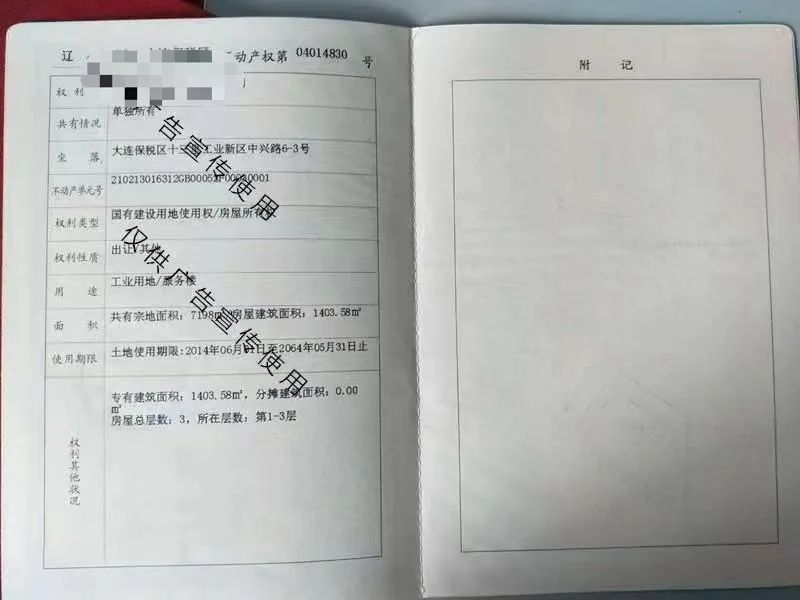 辽
不动产权第 04014830 号
附 记
权利
共有情况 单独所有
坐 落 大连保税区十三 工业新区中兴路6-3号
不动产单元号 210213016312GB00052F00030001
权利类型 国有建设用地使用权/房屋所有权
权利性质 出让/其他
用 途 工业用地/服务楼
面 积 共有宗地面积：7198㎡/房屋建筑面积：1403.58㎡
使用期限 土地使用期限:2014年06月01日至2064年05月31日止
权利其他状况
专有建筑面积：1403.58㎡，分摊建筑面积：0.00
㎡
房屋总层数：3，所在层数：第1-3层
广告宣传使用
仅供广告宣传使用